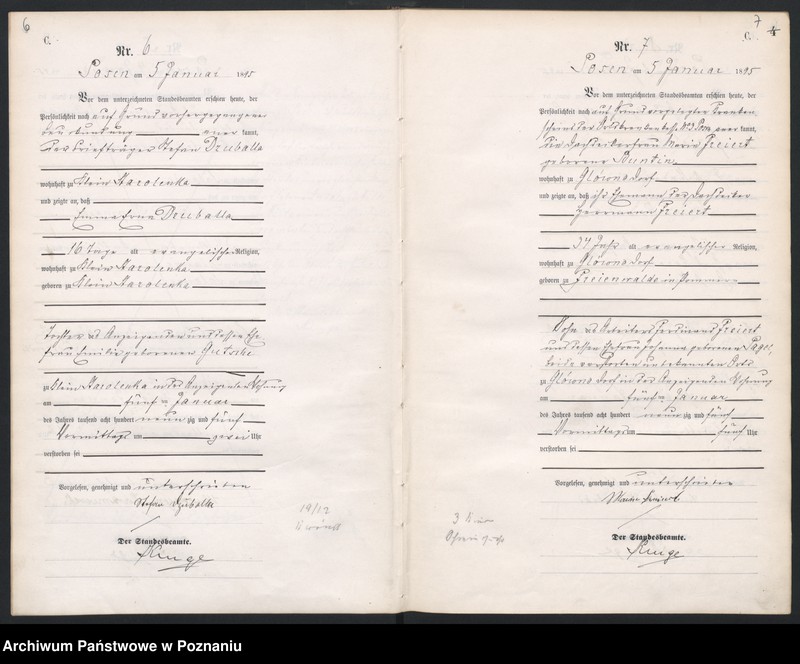 6
C.
Nr. 6
Posen am 5 Januar 1895
Vor dem unterzeichneten Standesbeamten erschien heute, der
Persönlichkeit nach auf Grund vorhergegangener
kannt,
der Briefträger Stefan Dzuballa
wohnhaft zu Klein Starolenka
und zeigte an, daß
Emma Erna Dzuballa
16 Tage alt evangelischer Religion,
wohnhaft zu Klein Starolenka
geboren zu Klein Starolenka
Tochter des Anzeigenden und dessen Ehe
frau Emilie geborenen Gutsche
zu Klein Starolenka in des Anzeigenden Wohnung
am fünften Januar
des Jahres tausend acht hundert neunzig und fünf
Vormittags um zwei Uhr
verstorben sei
Vorgelesen, genehmigt und unterschrieben
Stefan Dzuballa
Der Standesbeamte.
Kluge
19/12
7
C.
Nr. 7
Posen am 5 Januar 1895
Vor dem unterzeichneten Standesbeamten erschien heute, der
Persönlichkeit nach auf Grund vorgelegten Kranken
kannt,
die Dachdeckerfrau Maria Freiert
geborene Buntin
wohnhaft zu Glowno Dorf
und zeigte an, daß ihr Ehemann der Dachdecker
Herrmann Freiert
34 Jahr alt evangelischer Religion,
wohnhaft zu Glowno Dorf
geboren zu Freienwalde in Pommern
Sohn des Arbeiters Ferdinand Freiert
und dessen Ehefrau Johanna geborenen
beide verstorben unbekannten Orts
zu Glowno Dorf in der Anzeigenden Wohnung
am fünften Januar
des Jahres tausend acht hundert neunzig und fünf
Vormittags um fünf Uhr
verstorben sei
Vorgelesen, genehmigt und unterschrieben
Der Standesbeamte.
Kluge
Archiwum Państwowe w Poznaniu